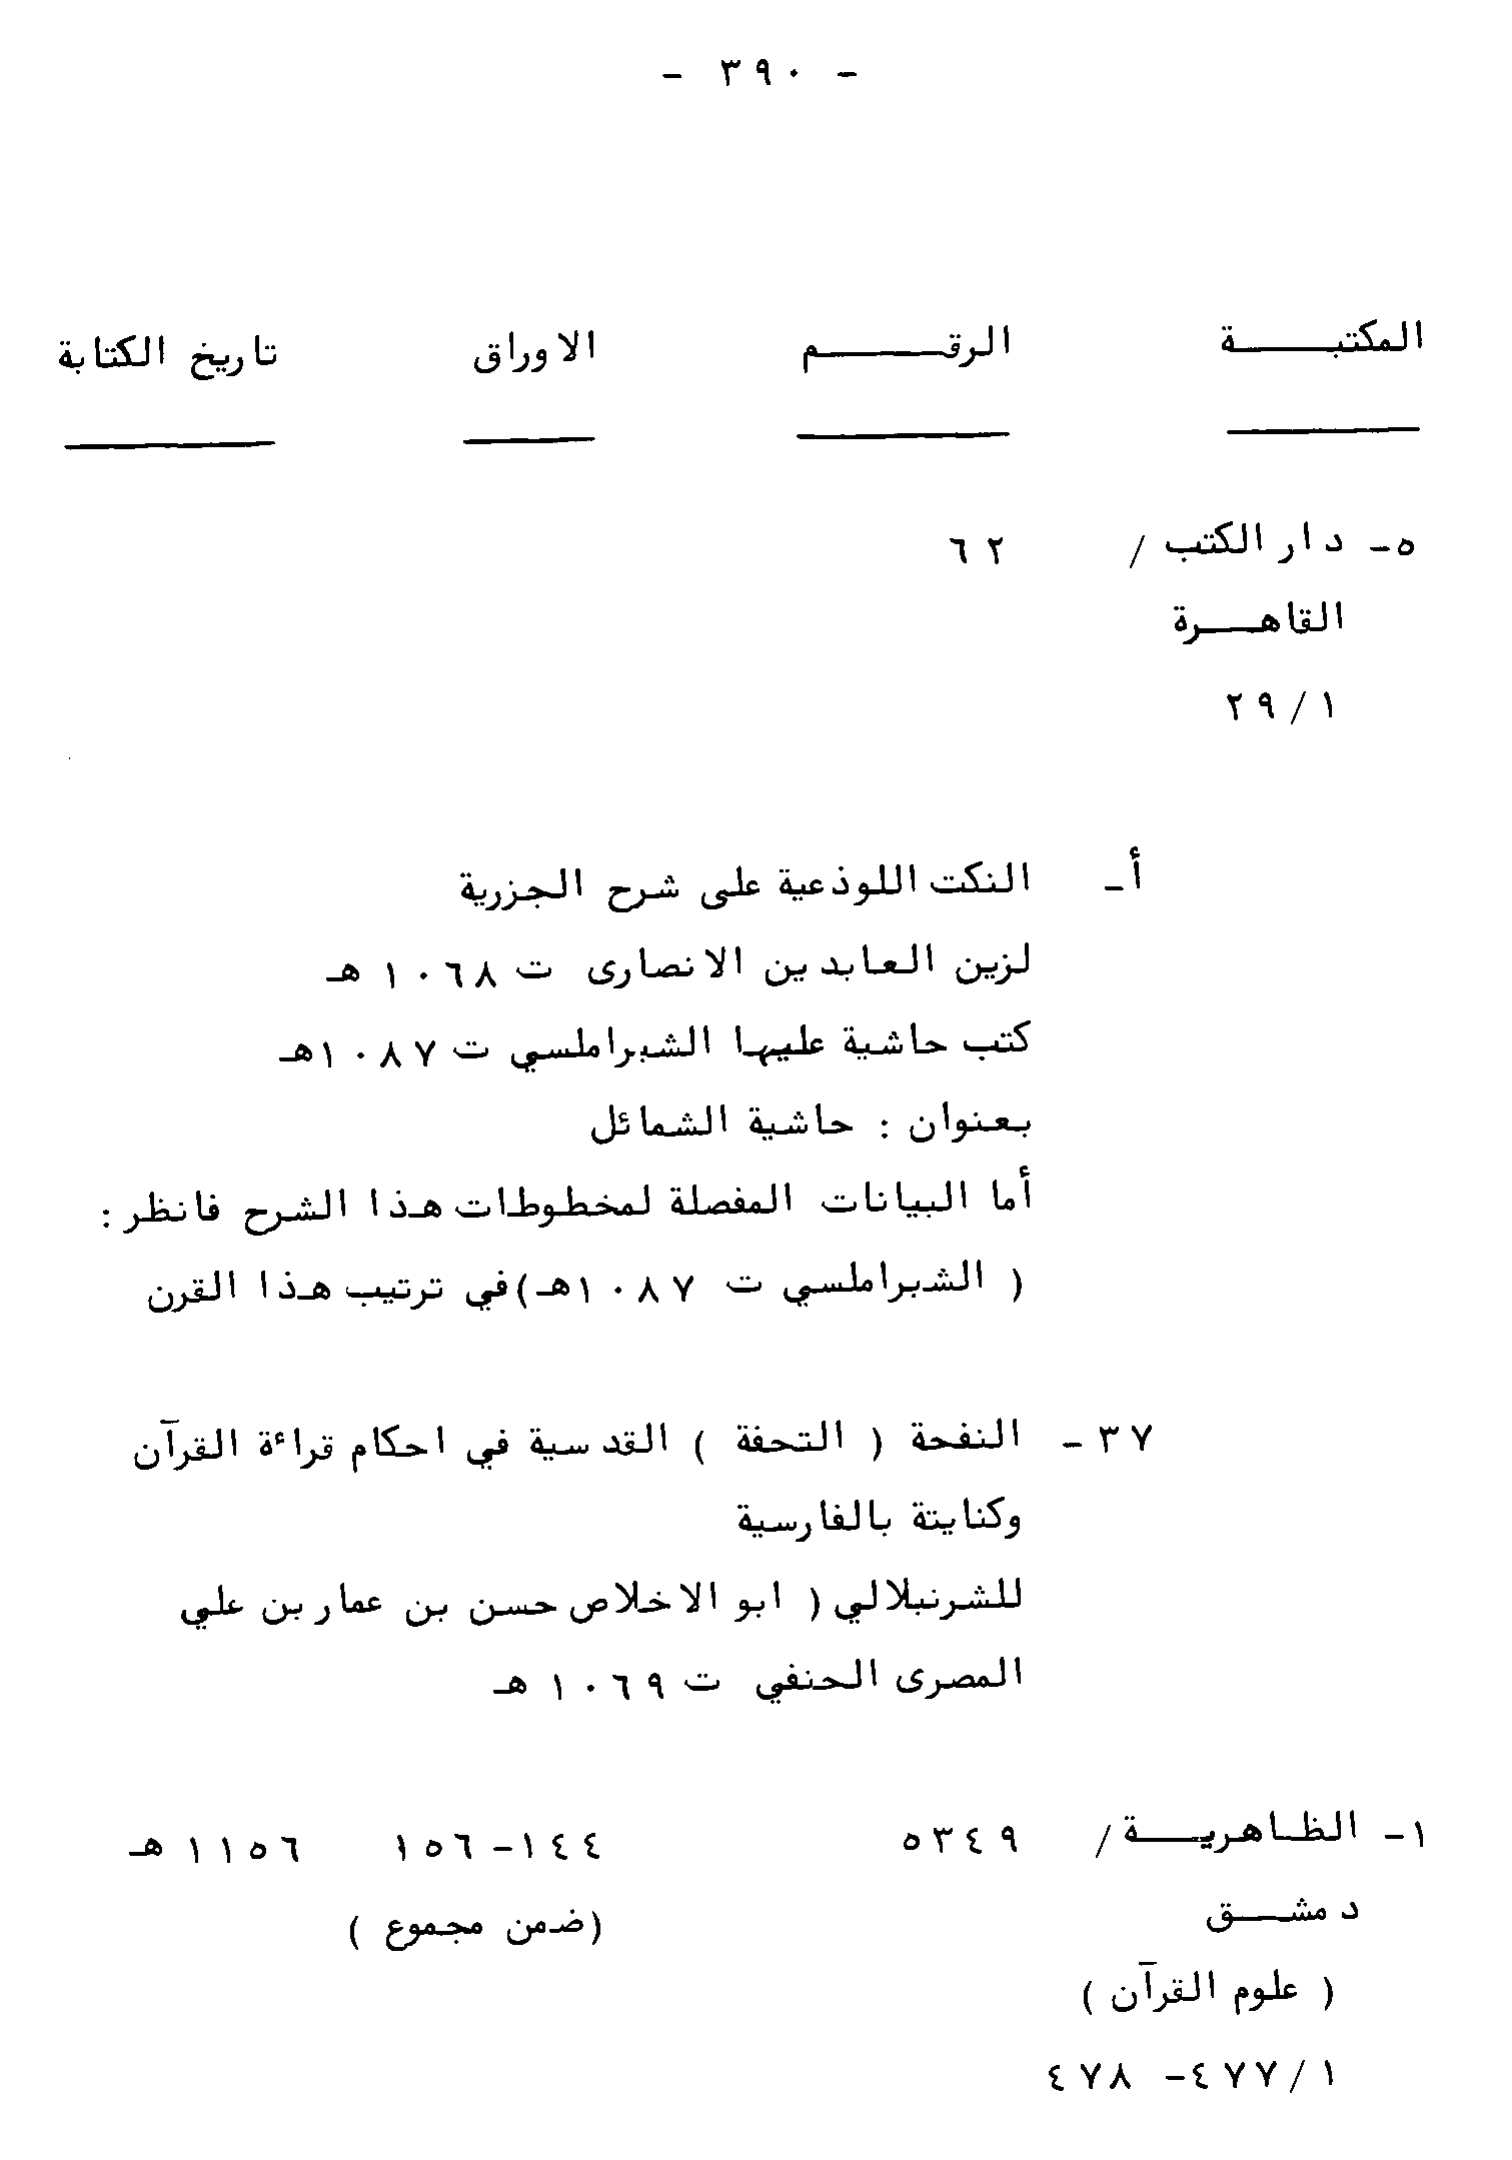 - ٣٩٠ -
المكتبــــة الرقــــم الاوراق تاريخ الكتابة
٥- دار الكتب / ٦٢
القاهــرة
٢٩/١
أ- النكت اللوذعية على شرح الجزرية
لزين العابدين الانصارى ت ١٠٦٨ هـ
كتب حاشية عليها الشبراملسي ت ١٠٨٧هـ
بعنوان : حاشية الشمائل
أما البيانات المفصلة لمخطوطات هذا الشرح فانظر :
( الشبراملسي ت ١٠٨٧هـ) في ترتيب هذا القرن
٣٧- النفحة ( التحفة ) القدسية في احكام قراءة القرآن
وكنايتة بالفارسية
للشرنبلالي ( ابو الاخلاص حسن بن عمار بن علي
المصرى الحنفي ت ١٠٦٩ هـ
١- الظاهريــة / ٥٣٤٩ ١٤٤-١٥٦ ١١٥٦ هـ
دمشــق (ضمن مجموع )
( علوم القرآن )
١/٤٧٧- ٤٧٨